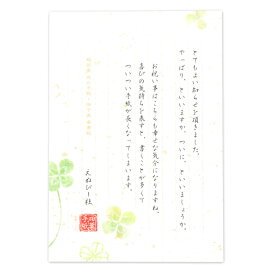 とてもよい知らせを頂きました。
やっぱり、といいますか。ついに、といいましょうか。
お祝い事はこちらも幸せな気分になりますね。
喜びの気持ちを表すと、書くことが多くて
ついつい手紙が長くなってしまいます。
えぬびー社